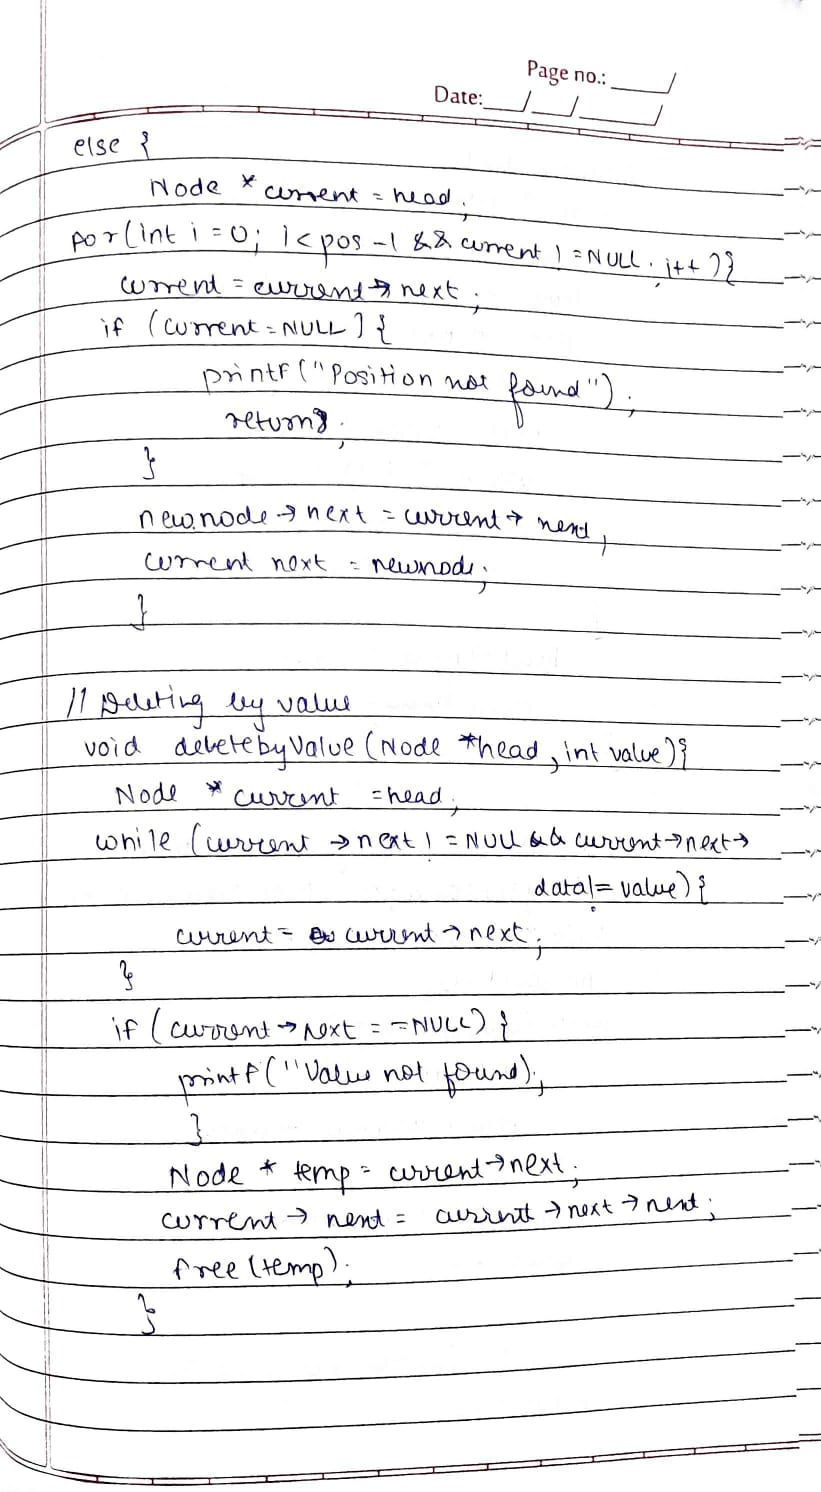 Page no.:
Date:
else {
Node * current = head;
for(int i = 0; i < pos - 1 && current != NULL; i++){
current = current → next;
if (current = NULL) {
printf("Position not found");
return;
}
newnode → next = current → next;
current next = newnode;
}
// Deleting by value
void deletebyValue (Node *head, int value){
Node * current = head;
while (current → next != NULL && current → next →
data != value) {
current = current → next;
}
if (current → next == NULL) {
printf("Value not found);
}
Node * temp = current → next;
current → next = current → next → next;
free (temp);
}